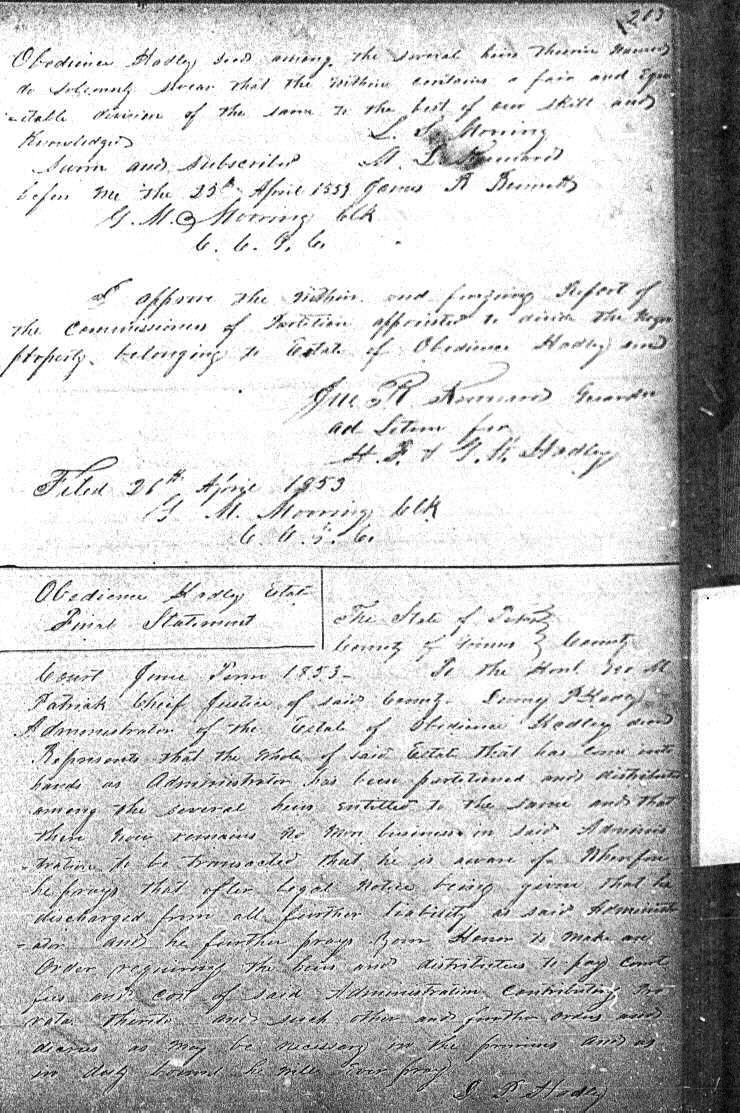 213
Obedience Hadley decd among the several heirs therein Named
do solemnly swear that the within contains a fair and Equi
-itable division of the same to the best of our skill and
Knowledge
L. S.
Sworn and subscribed M. L. Kennard
before me the 25th April 1853 James R Bennett
G. M. Mooring Clk
C. C. G. C.
I approve the within and foregoing Report of
the Commissioners of Partition appointed to divide the Negro
property belonging to Estate of Obedience Hadley decd
Jno R Kennard Guardn
ad Litem for
H. P. & Hadley
Filed 26th April 1853
G M. Mooring Clk
C. C. G. C.
Obedience Hadley Estate
Final Statement
The State of Texas
County of Grimes County
Court June Term 1853- To the Honl Geo M
Patrick Chief Justice of said County
Administrator of the Estate of Obedience Hadley decd
Represents that the Whole of said Estate that has come into
hands as Administrator has been partitioned and distributed
among the several heirs entitled to the same and that
there now remains no more business in said Adminis
-tration to be transacted that he is aware of Wherefore
he prays that after Legal Notice being given that he
discharged from all further liability as said Administ
-ator and he further prays Your Honor to make an
Order requiring the heirs and distributees to pay Court
fees and cost of said Administration Contributing Pro
rata thereto and such other and further orders and
decrees as may be necessary in the premises and as
in duty bound he will ever pray
Hadley